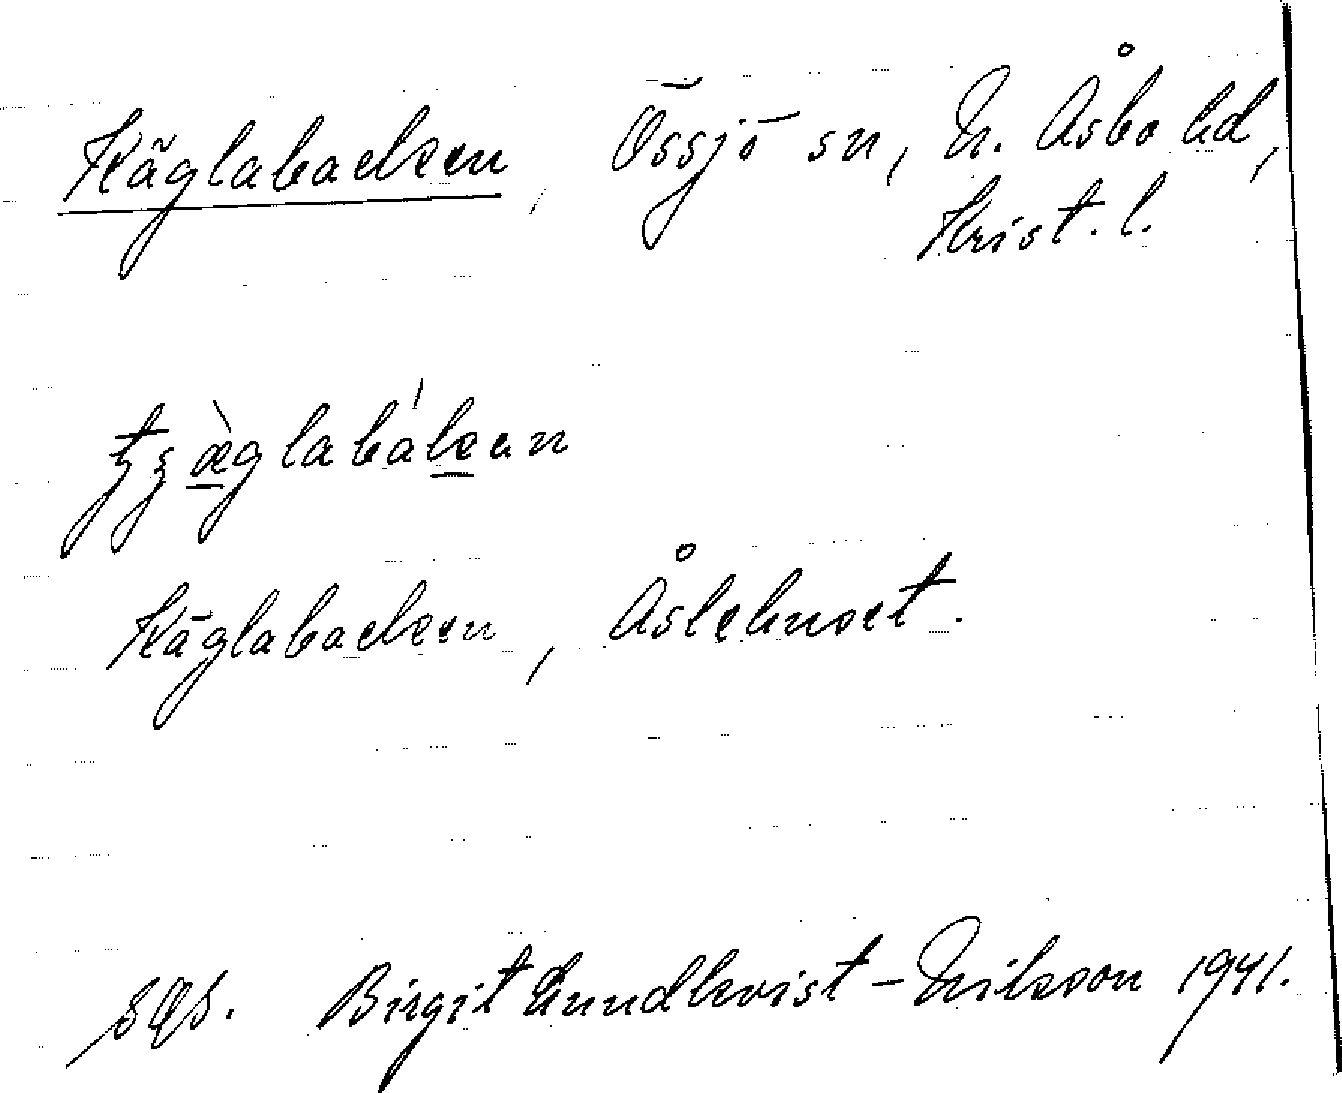 Käglabacken, Össjö sn, N. Åsbo hd,
Krist. l.
Käglabacken, Åslehuset.
Birgit Lundkvist-Nilsson 1941.